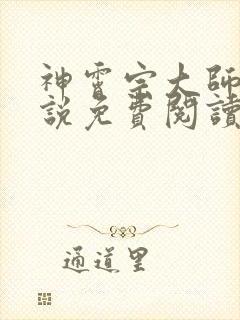 神霄宗大師
說免費閱讀
通道里